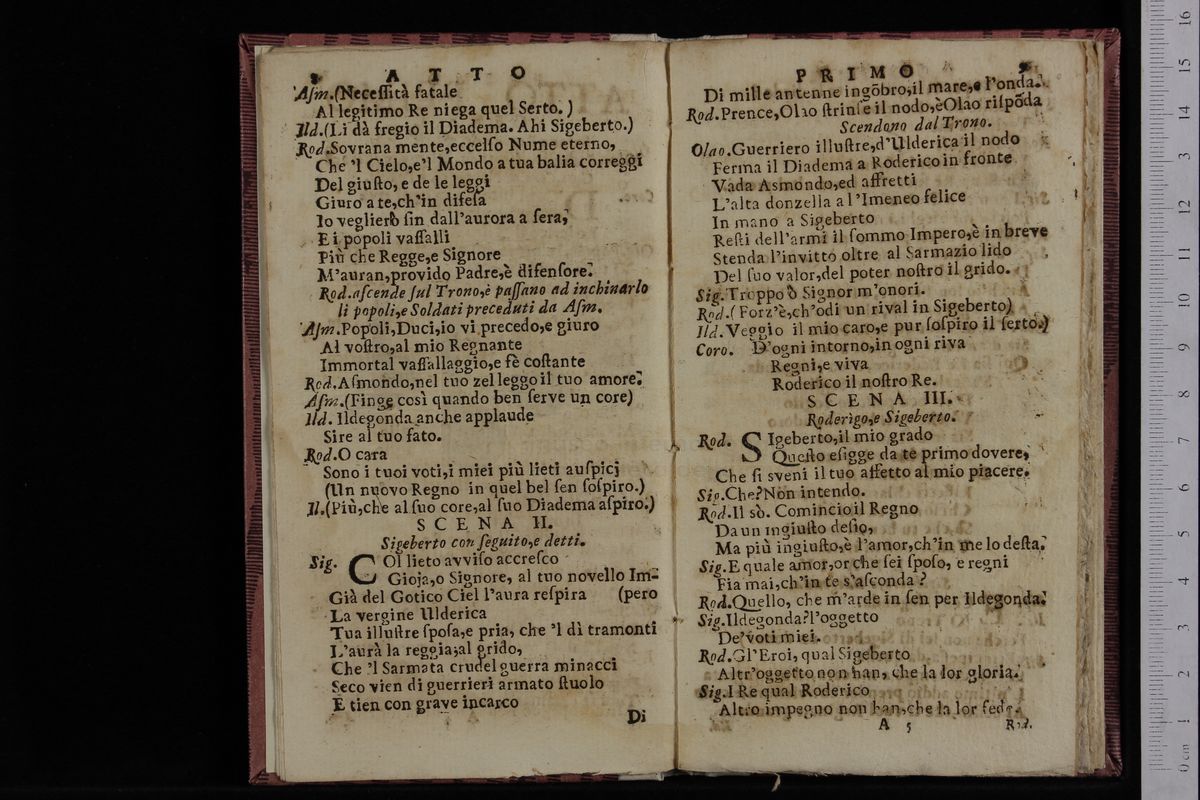 8 ATTO
Aſm.(Neceſſità fatale
Al legitimo Re niega quel Serto.)
Ild.(Li dà fregio il Diadema. Ahi Sigeberto.)
Rod.Sovrana mente,eccelſo Nume eterno,
Che 'l Cielo,e'l Mondo a tua balia correggi
Del giuſto, e de le leggi
Giuro a te,ch'in difeſa
Io veglierò ſin dall'aurora a ſera;
E i popoli vaſſalli
Più che Regge,e Signore
M'auran,provido Padre,è difenſore.
Rod.aſcende ſul Trono,è paſſano ad inchinarlo
li popoli,e Soldati preceduti da Aſm.
Aſm.Popoli,Duci,io vi precedo,e giuro
Al voſtro,al mio Regnante
Immortal vaſſallaggio,e fè coſtante
Rod.Aſmondo,nel tuo zel leggo il tuo amore.
Aſm.(Finge così quando ben ſerve un core)
Ild. Ildegonda anche applaude
Sire al tuo fato.
Rod.O cara
Sono i tuoi voti,i miei più lieti auſpicj
(Un nuovo Regno in quel bel ſen ſoſpiro.)
Il.(Più,che al ſuo core,al ſuo Diadema aſpiro.)
SCENA II.
Sigeberto con ſeguito,e detti.
Sig. COl lieto avviſo accreſco
Gioja,o Signore, al tuo novello Im-
Già del Gotico Ciel l'aura reſpira (pero
La vergine Ulderica
Tua illuſtre ſpoſa,e pria, che 'l dì tramonti
L'aurà la reggia;al grido,
Che 'l Sarmata crudel guerra minacci
Seco vien di guerrieri armato ſtuolo
E tien con grave incarco
Di
PRIMO 9
Di mille antenne ingõbro,il mare,e l'onda.
Rod.Prence,Olao ſtrinſe il nodo,èOlao riſpõda
Scendono dal Trono.
Olao.Guerriero illuſtre,d'Ulderica il nodo
Ferma il Diadema a Roderico in fronte
Vada Asmondo,ed affretti
L'alta donzella a l'Imeneo felice
In mano a Sigeberto
Reſti dell'armi il ſommo Impero,è in breve
Stenda l'invitto oltre al Sarmazio lido
Del ſuo valor,del poter noſtro il grido.
Sig.Troppo ò Signor m'onori.
Rod.(Forz'è,ch'odi un rival in Sigeberto)
Ild.Veggio il mio caro,e pur ſoſpiro il ſerto.)
Coro. D'ogni intorno,in ogni riva
Regni,e viva
Roderico il noſtro Re.
SCENA III.
Roderigo,e Sigeberto.
Rod. SIgeberto,il mio grado
Queſto eſigge da te primo dovere;
Che ſi sveni il tuo affetto al mio piacere.
Sig.Che?Non intendo.
Rod.Il sò. Comincio il Regno
Da un ingiuſto deſio,
Ma più ingiuſto,è l'amor,ch'in me lo deſta.
Sig.E quale amor,or che ſei ſpoſo, e regni
Fia mai,ch'in te s'aſconda?
Rod.Quello, che m'arde in ſen per Ildegonda.
Sig.Ildegonda?l'oggetto
De'voti miei.
Rod.Gl'Eroi, qual Sigeberto
Altr'oggetto non han, che la lor gloria.
Sig.I Re qual Roderico
Altro impegno non han,che la lor fede.
A 5 Rod.
0 cm 1 2 3 4 5 6 7 8 9 10 11 12 13 14 15 16